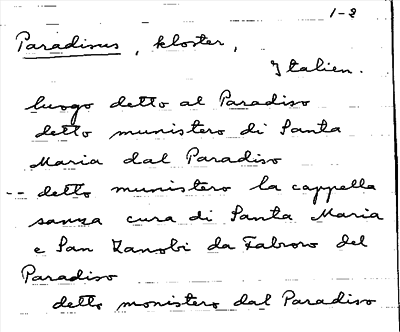 1-2
Paradisus, kloster,
Italien.
luogo detto al Paradiso
detto munistero di Santa
Maria dal Paradiso
-- detto munistero la cappella
sanza cura di Santa Maria
e San Zanobi da Fabroro del
Paradiso
detto monistero dal Paradiso